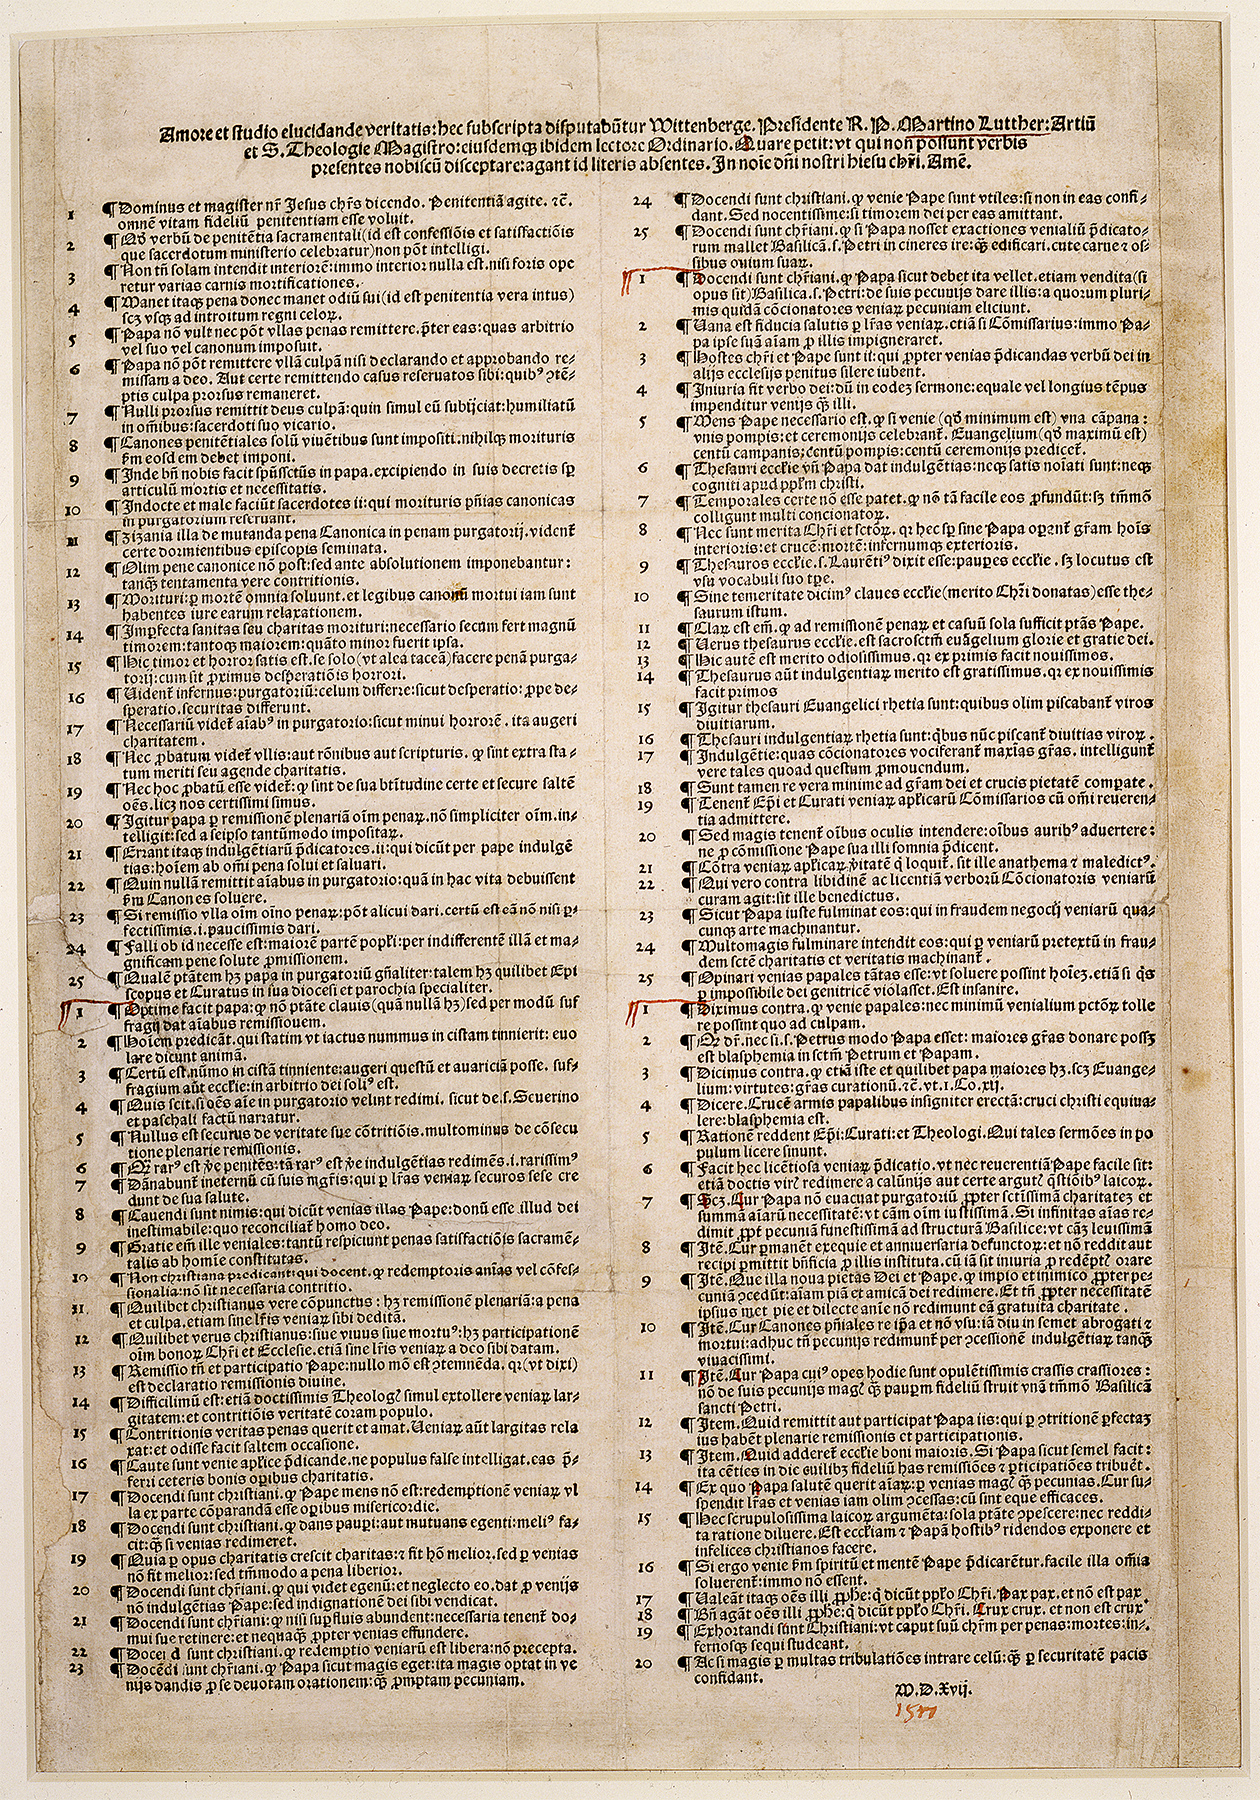 Amore et studio elucidande veritatis: hec subscripta disputabūtur Wittenberge. Presidente R. P. Martino Lutther: Artiū
et S. Theologie Magistro: eiusdemqꝫ ibidem lectore Ordinario. Quare petit: vt qui non possunt verbis
presentes nobiscū disceptare: agant id literis absentes. In noīe dn̄i nostri hiesu chr̄i. Amē.
1 ¶ Dominus et magister nr̄ Jesus chr̄s dicendo. Penitentiā agite. ꝛc̄.
omnē vitam fideliū penitentiam esse voluit.
2 ¶ Qd̄ verbū de penitētia sacramentali (id est confessiōis et satisfactiōis
que sacerdotum ministerio celebratur) non pōt intelligi.
3 ¶ Non tn̄ solam intendit interiorē: immo interior nulla est. nisi foris ope
retur varias carnis mortificationes.
4 ¶ Manet itaqꝫ pena donec manet odiū sui (id est penitentia vera intus)
scꝫ vsqꝫ ad introitum regni celoꝝ.
5 ¶ Papa nō vult nec pōt vllas penas remittere. p̄ter eas: quas arbitrio
vel suo vel canonum imposuit.
6 ¶ Papa nō pōt remittere vllā culpā nisi declarando et approbando re⸗
missam a deo. Aut certe remittendo casus reseruatos sibi: quibꝰ ꝯtē⸗
ptis culpa prorsus remaneret.
7 ¶ Nulli prorsus remittit deus culpā: quin simul eū subijciat: humiliatū
in oībus: sacerdoti suo vicario.
8 ¶ Canones penitētiales solū viuētibus sunt impositi. nihilqꝫ morituris
ẜm eosdem debet imponi.
9 ¶ Inde bn̄ nobis facit spūssctūs in papa. excipiendo in suis decretis sꝑ
articulū mortis et necessitatis.
10 ¶ Indocte et male faciūt sacerdotes ii: qui morituris pn̄ias canonicas
in purgatorium reseruant.
11 ¶ Zizania illa de mutanda pena Canonica in penam purgatorij. videnť
certe dormientibus episcopis seminata.
12 ¶ Olim pene canonice nō post: sed ante absolutionem imponebantur:
tanqꝫ̄ tentamenta vere contritionis.
13 ¶ Morituri: ꝑ mortē omnia soluunt. et legibus canonū mortui iam sunt
habentes iure earum relaxationem.
14 ¶ Imꝑfecta sanitas seu charitas morituri: necessario secum fert magnū
timorem: tantoqꝫ maiorem: quāto minor fuerit ipsa.
15 ¶ Hic timor et horror satis est. se solo (vt alea taceā) facere penā purga⸗
torij: cum sit ꝓximus desperatiōis horrori.
16 ¶ Videnť infernus: purgatoriū: celum differre: sicut desperatio: ꝓpe de⸗
speratio. securitas differunt.
17 ¶ Necessariū videť aīabꝰ in purgatorio: sicut minui horrorē. ita augeri
charitatem.
18 ¶ Nec ꝓbatum videť vllis: aut rōnibus aut scripturis. ꝙ sint extra sta⸗
tum meriti seu agende charitatis.
19 ¶ Nec hoc ꝓbatū esse videť: ꝙ sint de sua btītudine certe et secure saltē
oēs. licꝫ nos certissimi simus.
20 ¶ Igitur papa ꝑ remissionē plenariā oīm penaꝝ. nō simpliciter oīm. in⸗
telligit: sed a seipso tantūmodo impositaꝝ.
21 ¶ Errant itaqꝫ indulgētiarū p̄dicatores. ii: qui dicūt per pape indulgē
tias: hoīem ab omī pena solui et saluari.
22 ¶ Quin nullā remittit aīabus in purgatorio: quā in hac vita debuissent
ẜm Canones soluere.
23 ¶ Si remissio vlla oīm oīno penaꝝ: pōt alicui dari. certū est eā nō nisi ꝑ⸗
fectissimis. i. paucissimis dari.
24 ¶ Falli ob id necesse est: maiorē partē popl̄i: per indifferentē illā et ma⸗
gnificam pene solute ꝓmissionem.
25 ¶ Qualē ptātem hꝫ papa in purgatoriū gn̄aliter: talem hꝫ quilibet Epi
scopus et Curatus in sua diocesi et parochia specialiter.
1 ¶ Optime facit papa: ꝙ nō ptāte clauis (quā nullā hꝫ) sed per modū suf
fragij dat aīabus remissionem.
2 ¶ Hoīem predicāt. qui statim vt iactus nummus in cistam tinnierit: euo
lare dicunt animā.
3 ¶ Certū est. nūmo in cistā tinniente: augeri questū et auariciā posse. suf⸗
fragium aūt eccl̄ie: in arbitrio dei soliꝰ est.
4 ¶ Quis scit. si oēs aīe in purgatorio velint redimi. sicut de. s. Seuerino
et paschali factū narratur.
5 ¶ Nullus est securus de veritate sue cōtritiōis. multominus de cōsecu
tione plenarie remissionis.
6 ¶ Qꝫ̄ rarꝰ est ꝟe penitēs: tā rarꝰ est ꝟe indulgētias redimēs. i. rarissimꝰ
7 ¶ Dānabunť ineternū cū suis mgr̄is: qui ꝑ lr̄as veniaꝝ securos sese cre
dunt de sua salute.
8 ¶ Cauendi sunt nimis: qui dicūt venias illas Pape: donū esse illud dei
inestimabile: quo reconciliať homo deo.
9 ¶ Gratie em̄ ille veniales: tantū respiciunt penas satisfactiōis sacramē⸗
talis ab homīe constitutas.
10 ¶ Non christiana predicant: qui docent. ꝙ redemptoris anīas vel cōfes⸗
sionalia: nō sit necessaria contritio.
11 ¶ Quilibet christianus vere cōpunctus: hꝫ remissionē plenariā: a pena
et culpa. etiam sine lr̄is veniaꝝ sibi deditā.
12 ¶ Quilibet verus christianus: siue viuus siue mortuꝰ: hꝫ participationē
oīm bonoꝝ Chr̄i et Ecclesie. etiā sine lr̄is veniaꝝ a deo sibi datam.
13 ¶ Remissio tn̄ et participatio Pape: nullo mō est ꝯtemnēda. qꝛ (vt dixi)
est declaratio remissionis diuine.
14 ¶ Difficilimū est: etiā doctissimis Theologꝭ simul extollere veniaꝝ lar⸗
gitatem: et contritiōis veritatē coram populo.
15 ¶ Contritionis veritas penas querit et amat. Veniaꝝ aūt largitas rela
xat: et odisse facit saltem occasione.
16 ¶ Caute sunt venie apl̄ice p̄dicande. ne populus false intelligat. eas p̄⸗
ferri ceteris bonis oꝑibus charitatis.
17 ¶ Docendi sunt christiani. ꝙ Pape mens nō est: redemptionē veniaꝝ vl
la ex parte cōparandā esse oꝑibus misericordie.
18 ¶ Docendi sunt christiani. ꝙ dans pauꝑi: aut mutuans egenti: meliꝰ fa⸗
cit: qꝫ̄ si venias redimeret.
19 ¶ Quia ꝑ opus charitatis crescit charitas: ⁊ fit hō melior. sed ꝑ venias
nō fit melior: sed tm̄modo a pena liberior.
20 ¶ Docendi sunt chr̄iani. ꝙ qui videt egenū: et neglecto eo. dat ꝓ venijs
nō indulgētias Pape: sed indignationē dei sibi vendicat.
21 ¶ Docendi sunt chr̄iani: ꝙ nisi suꝑfluis abundent: necessaria tenenť do⸗
mui sue retinere: et nequaqꝫ̄ ꝓpter venias effundere.
22 ¶ Docendi sunt christiani. ꝙ redemptio veniarū est libera: nō precepta.
23 ¶ Docēdi sunt chr̄iani. ꝙ Papa sicut magis eget: ita magis optat in ve
nijs dandis ꝓ se deuotam orationem: qꝫ̄ ꝓmptam pecuniam.
24 ¶ Docendi sunt christiani. ꝙ venie Pape sunt vtiles: si non in eas confi⸗
dant. Sed nocentissime: si timorem dei per eas amittant.
25 ¶ Docendi sunt chr̄iani. ꝙ si Papa nosset exactiones venialiū p̄dicato⸗
rum mallet Basilicā. s. Petri in cineres ire: qꝫ̄ edificari. cute carne ⁊ os⸗
sibus ouium suaꝝ.
1 ¶ Docendi sunt chr̄iani. ꝙ Papa sicut debet ita vellet. etiam vendita (si
opus sit) Basilica. s. Petri: de suis pecunijs dare illis: a quorum pluri⸗
mis quidā cōcionatores veniaꝝ pecuniam eliciunt.
2 ¶ Vana est fiducia salutis ꝑ lr̄as veniaꝝ. etiā si Cōmissarius: immo Pa⸗
pa ipse suā aīam ꝓ illis impigneraret.
3 ¶ Hostes chr̄i et Pape sunt ii: qui ꝓpter venias p̄dicandas verbū dei in
alijs ecclesijs penitus silere iubent.
4 ¶ Iniuria fit verbo dei: dū in eodeꝫ sermone: equale vel longius tēpus
impenditur venijs qꝫ̄ illi.
5 ¶ Mens Pape necessario est. ꝙ si venie (qd̄ minimum est) vna cāpana:
vnis pompis: et ceremonijs celebranť. Euangelium (qd̄ maximū est)
centū campanis: centū pompis: centū ceremonijs prediceť.
6 ¶ Thesauri eccl̄ie vn̄ Papa dat indulgētias: neqꝫ satis noīati sunt: neqꝫ
cogniti apud ppl̄m christi.
7 ¶ Temporales certe nō esse patet. ꝙ nō tā facile eos ꝓfundūt: sꝫ tm̄mō
colligunt multi concionatoꝝ.
8 ¶ Nec sunt merita Chr̄i et sctōꝝ. qꝛ hec sꝑ sine Papa oꝑanť gr̄am hoīs
interioris: et crucē: mortē: infernumqꝫ exterioris.
9 ¶ Thesauros eccl̄ie. s. Laurētiꝰ dixit esse: pauꝑes eccl̄ie. sꝫ locutus est
vsu vocabuli suo tꝑe.
10 ¶ Sine temeritate dicimꝰ claues eccl̄ie (merito Chr̄i donatas) esse the⸗
saurum istum.
11 ¶ Claꝝ est em̄. ꝙ ad remissionē penaꝝ et casuū sola sufficit ptās Pape.
12 ¶ Verus thesaurus eccl̄ie. est sacrosctm̄ euāgelium glorie et gratie dei.
13 ¶ Hic autē est merito odiosissimus. qꝛ ex primis facit nouissimos.
14 ¶ Thesaurus aūt indulgentiaꝝ merito est gratissimus. qꝛ ex nouissimis
facit primos
15 ¶ Igitur thesauri Euangelici rhetia sunt: quibus olim piscabanť viros
diuitiarum.
16 ¶ Thesauri indulgentiaꝝ rhetia sunt: qͥbus nūc piscanť diuitias viroꝝ.
17 ¶ Indulgētie: quas cōcionatores vociferanť maxīas gr̄as. intelligunť
vere tales quoad questum ꝓmouendum.
18 ¶ Sunt tamen re vera minime ad gr̄am dei et crucis pietatē compate.
19 ¶ Tenenť Epī et Curati veniaꝝ apl̄icarū Cōmissarios cū omī reueren⸗
tia admittere.
20 ¶ Sed magis tenenť oībus oculis intendere: oībus auribꝰ aduertere:
ne ꝓ cōmissione Pape sua illi somnia p̄dicent.
21 ¶ Cōtra veniaꝝ apl̄icaꝝ ꝟitatē qͥ loquiť. sit ille anathema ⁊ maledictꝰ.
22 ¶ Qui vero contra libidinē ac licentiā verborū Cōcionatoris veniarū
curam agit: sit ille benedictus.
23 ¶ Sicut Papa iuste fulminat eos: qui in fraudem negocij veniarū qua⸗
cunqꝫ arte machinantur.
24 ¶ Multomagis fulminare intendit eos: qui ꝑ veniarū pretextū in frau⸗
dem sctē charitatis et veritatis machinanť.
25 ¶ Opinari venias papales tātas esse: vt soluere possint hoīeꝫ. etiā si qͥs
ꝑ impossibile dei genitricē violasset. Est insanire.
1 ¶ Diximus contra. ꝙ venie papales: nec minimū venialium pctōꝝ tolle
re possint quo ad culpam.
2 ¶ Qd̄ dr̄. nec si. s. Petrus modo Papa esset: maiores gr̄as donare possꝫ
est blasphemia in sctm̄ Petrum et Papam.
3 ¶ Dicimus contra. ꝙ etiā iste et quilibet papa maiores hꝫ. scꝫ Euange⸗
lium: virtutes: gr̄as curationū. ꝛc̄. vt. 1. Co. xij.
4 ¶ Dicere. Crucē armis papalibus insigniter erectā: cruci christi equiua⸗
lere: blasphemia est.
5 ¶ Rationē reddent Epī: Curati: et Theologi. Qui tales sermōes in po
pulum licere sinunt.
6 ¶ Facit hec licētiosa veniaꝝ p̄dicatio. vt nec reuerentiā Pape facile sit:
etiā doctis virꝭ redimere a calūnijs aut certe argutꝭ qͣstiōibꝰ laicoꝝ.
7 ¶ Scꝫ. Cur Papa nō euacuat purgatoriū ꝓpter sctīssimā charitateꝫ et
summā aīarū necessitatē: vt cām oīm iustissimā. Si infinitas aīas re⸗
dimit ꝓpť pecuniā funestissimā ad structurā Basilice: vt cāꝫ leuissimā
8 ¶ Itē. Cur ꝑmanēt exequie et anniuersaria defunctoꝝ: et nō reddit aut
recipi ꝑmittit bn̄ficia ꝓ illis instituta. cū iā sit iniuria ꝓ redēptꝭ orare
9 ¶ Itē. Que illa noua pietas Dei et Pape. ꝙ impio et inimico ꝓpter pe⸗
cuniā ꝯcedūt: aīam piā et amicā dei redimere. Et tn̄ ꝓpter necessitatē
ipsius met pie et dilecte anīe nō redimunt eā gratuita charitate.
10 ¶ Itē. Cur Canones pn̄iales re ip̄a et nō vsu: iā diu in semet abrogati ⁊
mortui: adhuc tn̄ pecunijs redimunť per ꝯcessionē indulgētiaꝝ tanqꝫ̄
viuacissimi.
11 ¶ Itē. Cur Papa cuiꝰ opes hodie sunt opulētissimis crassis crassiores:
nō de suis pecunijs magꝭ qꝫ̄ pauꝑum fideliū struit vnā tm̄mō Basilicā
sancti Petri.
12 ¶ Item. Quid remittit aut participat Papa iis: qui ꝑ ꝯtritionē ꝑfectaꝫ
ius habēt plenarie remissionis et participationis.
13 ¶ Item. Quid adderetr eccl̄ie boni maioris. Si Papa sicut semel facit:
ita cēties in die cuilibꝫ fideliū has remissiōes ⁊ ꝑticipatiōes tribueť.
14 ¶ Ex quo Papa salutē querit aīaꝝ: ꝑ venias magꝭ qꝫ̄ pecunias. Cur su⸗
spendit lr̄as et venias iam olim ꝯcessas: cū sint eque efficaces.
15 ¶ Hec scrupulosissima laicoꝝ argumēta: sola ptāte ꝯpescere: nec reddi⸗
ta ratione diluere. Est eccl̄iam ⁊ Papā hostibꝰ ridendos exponere et
infelices christianos facere.
16 ¶ Si ergo venie ẜm spiritū et mentē Pape p̄dicarētur. facile illa omīa
soluerenť: immo nō essent.
17 ¶ Valeāt itaqꝫ oēs illi ꝓphe: qͥ dicūt ppl̄o Chr̄i. Pax pax. et nō est pax
18 ¶ Bn̄ agāt oēs illi ꝓphe: qͥ dicūt ppl̄o Chr̄i. Crux crux. et non est crux
19 ¶ Exhortandi sunt Christiani: vt caput suū chr̄m per penas: mortes: in⸗
fernosqꝫ sequi studeant.
20 ¶ Ac si magis ꝑ multas tribulatiōes intrare celū: qꝫ̄ ꝑ securitatē pacis
confidant.
M. D. Xvij.
1517